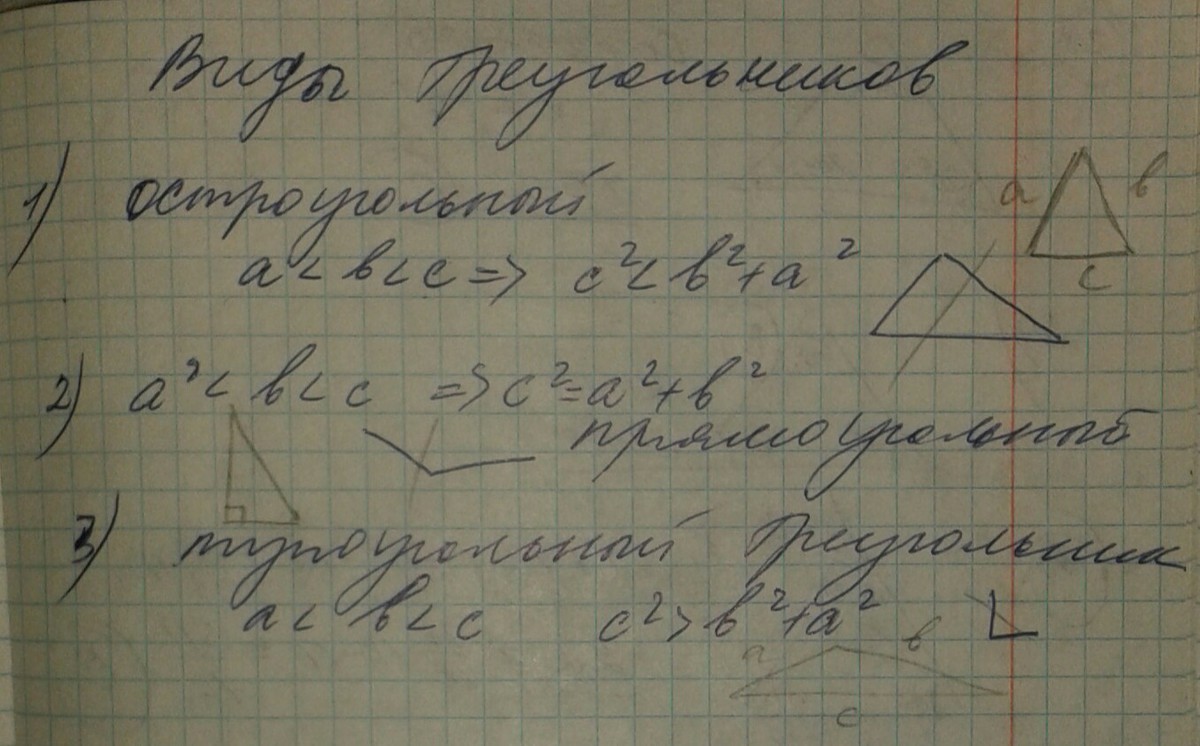 Виды треугольников
1) остроугольный
a b
a < b < c => c² < b² + a²
c
2) a² < b < c => c² = a² + b²
прямоугольный
3) тупоугольный треугольник
a < b < c c² > b² + a²
a b
c